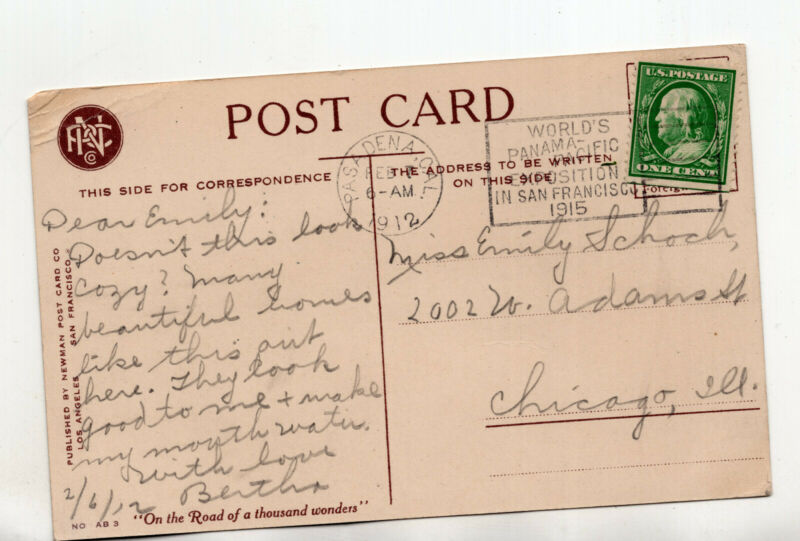 POST CARD
NPC
Co
THIS SIDE FOR CORRESPONDENCE
THE ADDRESS TO BE WRITTEN
ON THIS SIDE
PASADENA, CAL.
FEB
6-AM
1912
WORLD'S
PANAMA-
PACIFIC
EXPOSITION
IN SAN FRANCISCO
1915
U.S. POSTAGE
ONE CENT
Foreign
Dear Emily:
Doesn't this look
cozy? Many
beautiful homes
like this out
here. They look
good to me + make
my mouth water.
With love
2/6/12 Bertha
Miss Emily Schoch,
2002 W. Adams St
Chicago, Ill.
PUBLISHED BY NEWMAN POST CARD CO
LOS ANGELES SAN FRANCISCO
NO AB 3
"On the Road of a thousand wonders"